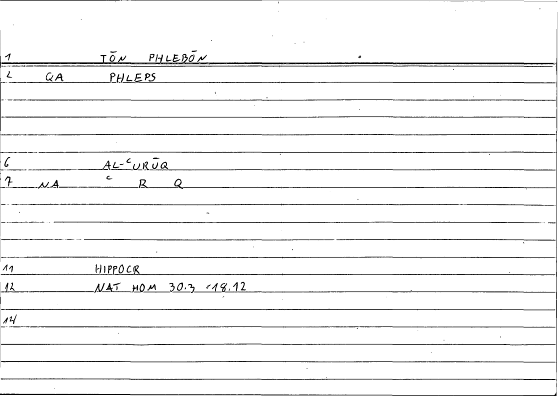 1 TŌN PHLEBŌN
2 QA PHLEPS
6 AL-ʿURŪQ
7 NA ʿ R Q
11 HIPPOCR
12 NAT HOM 30.3 18.12
14